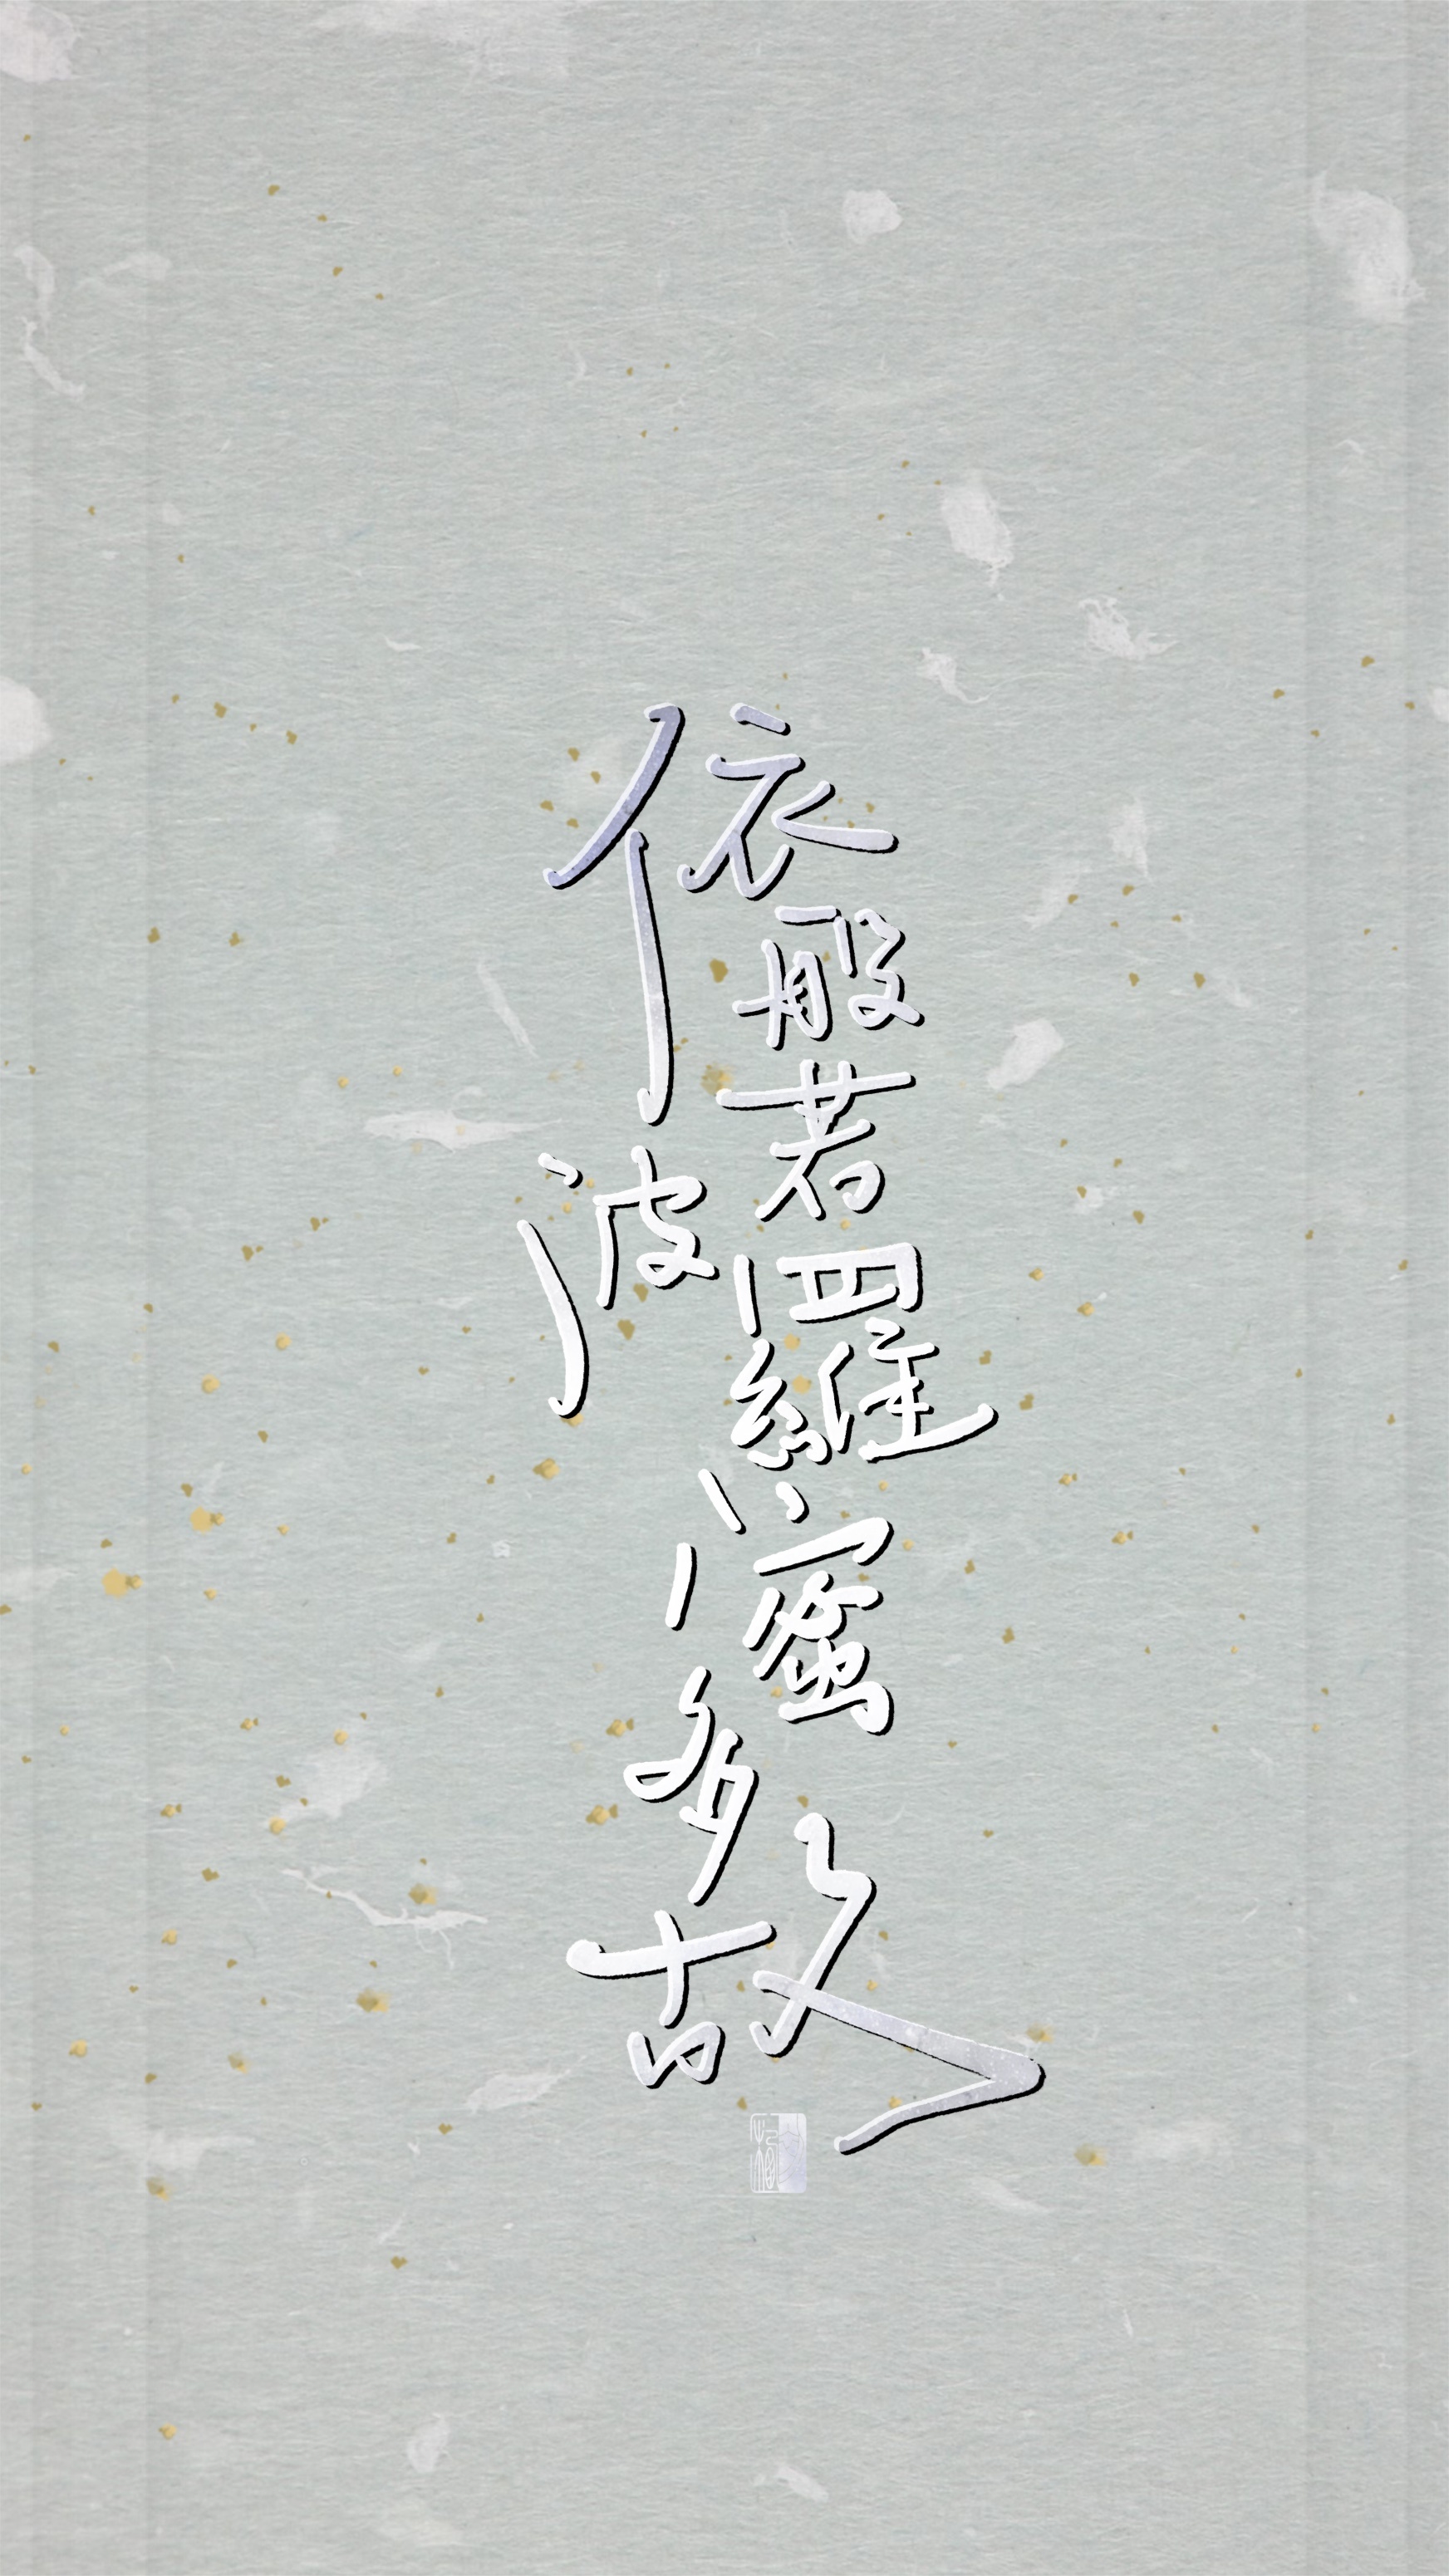 依般若波羅蜜多故